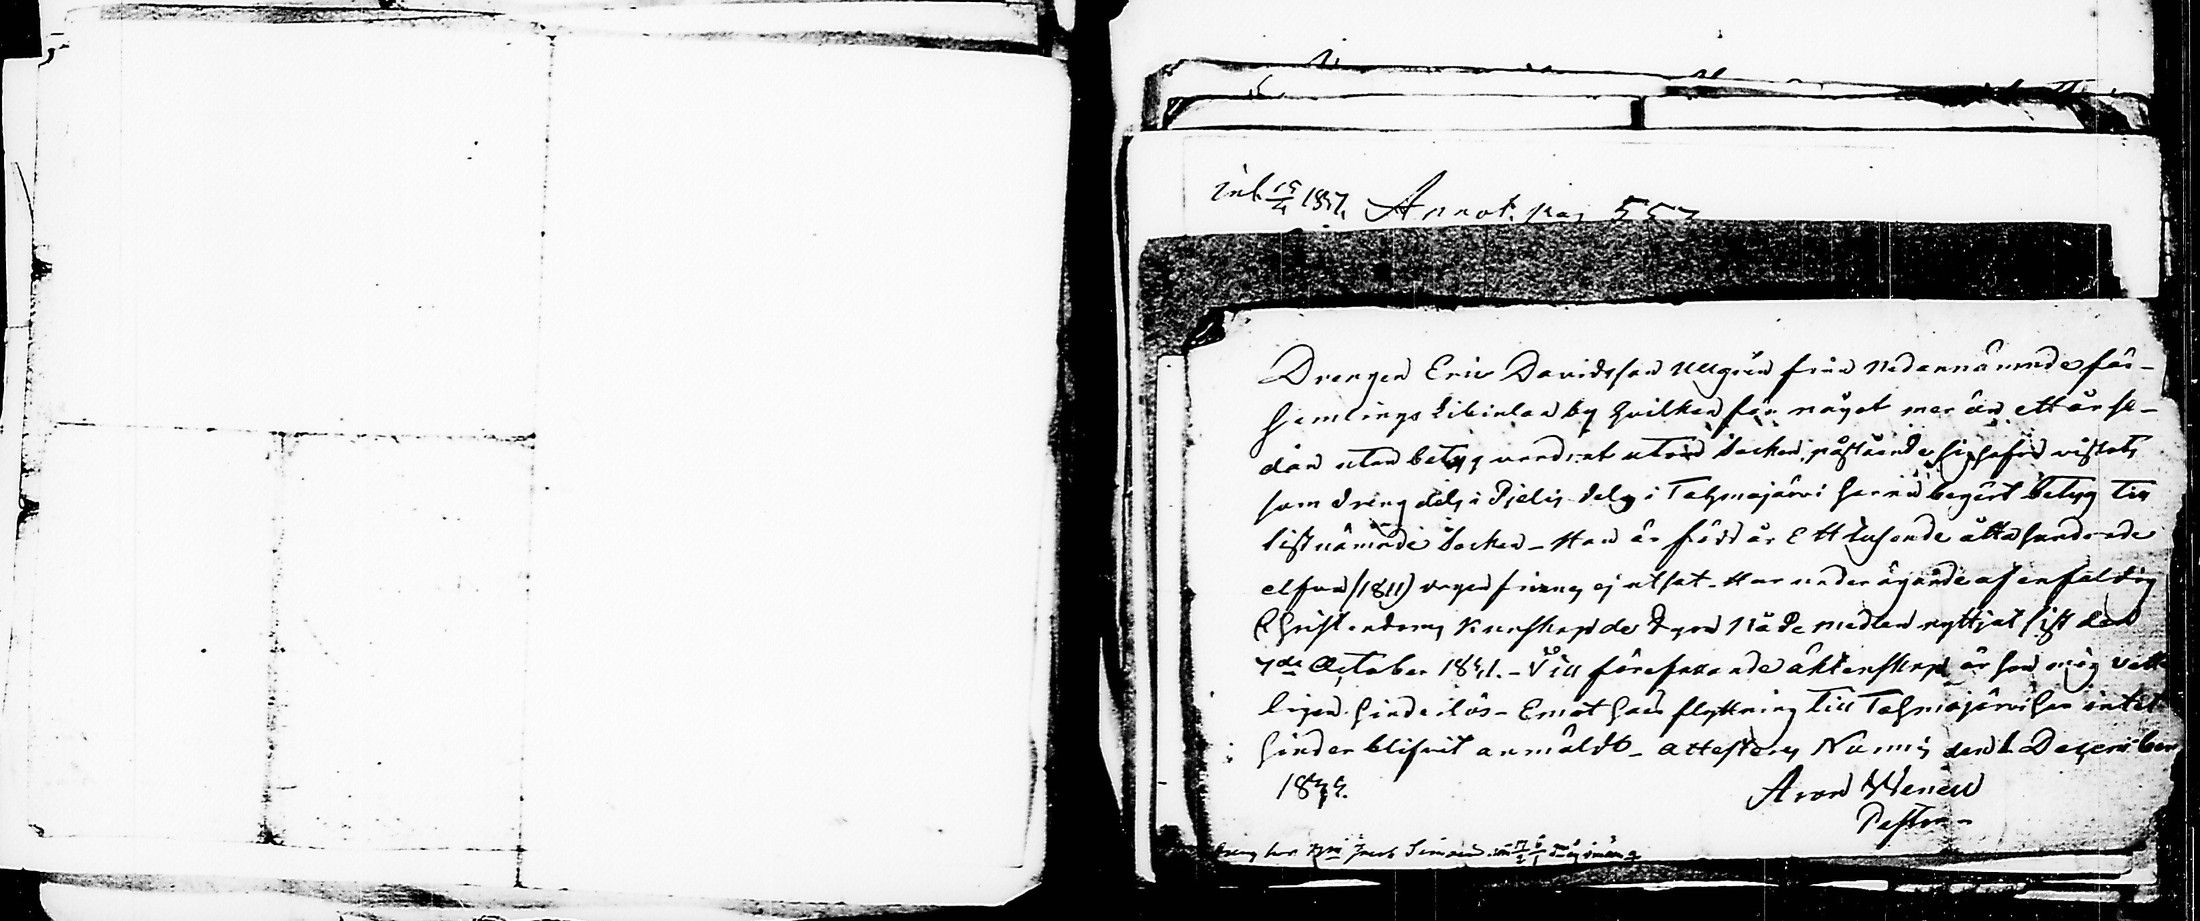 Annot. pag 557
Drengen Eric Davidsson Ullgrén från nedannämnde för-
samlings Libinlax by hvilken för något mer än ett år se-
dan utan betyg vandrat utom Socken, påstående sig hafva vistats
som dreng dels i Pielis dels i Tohmajärvi har nu begärt betyg till
sistnämnde Socken - Han är född år Ett tusende åtta hundrade
elfva (1811) dagen finnes ej utsat - Har under ägande af enfaldig
Christendoms kunskap de dyra Nåde medlen nyttjat sist den
October - Till förefallande äktenskap är han mig vetter-
ligen hinderlös - Emot hans flyttning till Tohmajärvi har intet
hinder blifvit anmäldt - attesterar Nurmis den December
Aron
Pastor